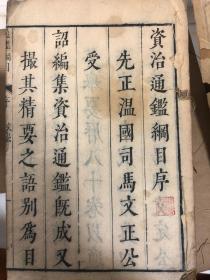 資治通鑑綱目序
先正温國司馬文正公
受
詔編集資治通鑑既成又
撮其精要之語别爲目